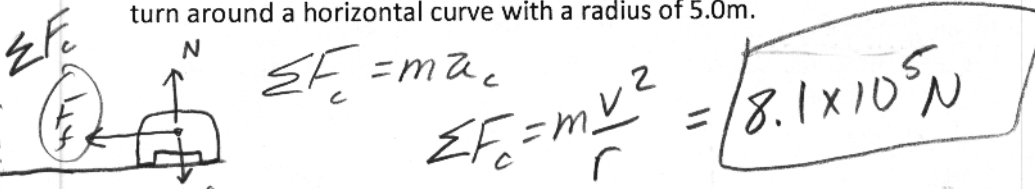 turn around a horizontal curve with a radius of 5.0m.
ΣF_c
N
ΣF_c = ma_c
F_f
ΣF_c = m v²/r = 8.1x10⁵N